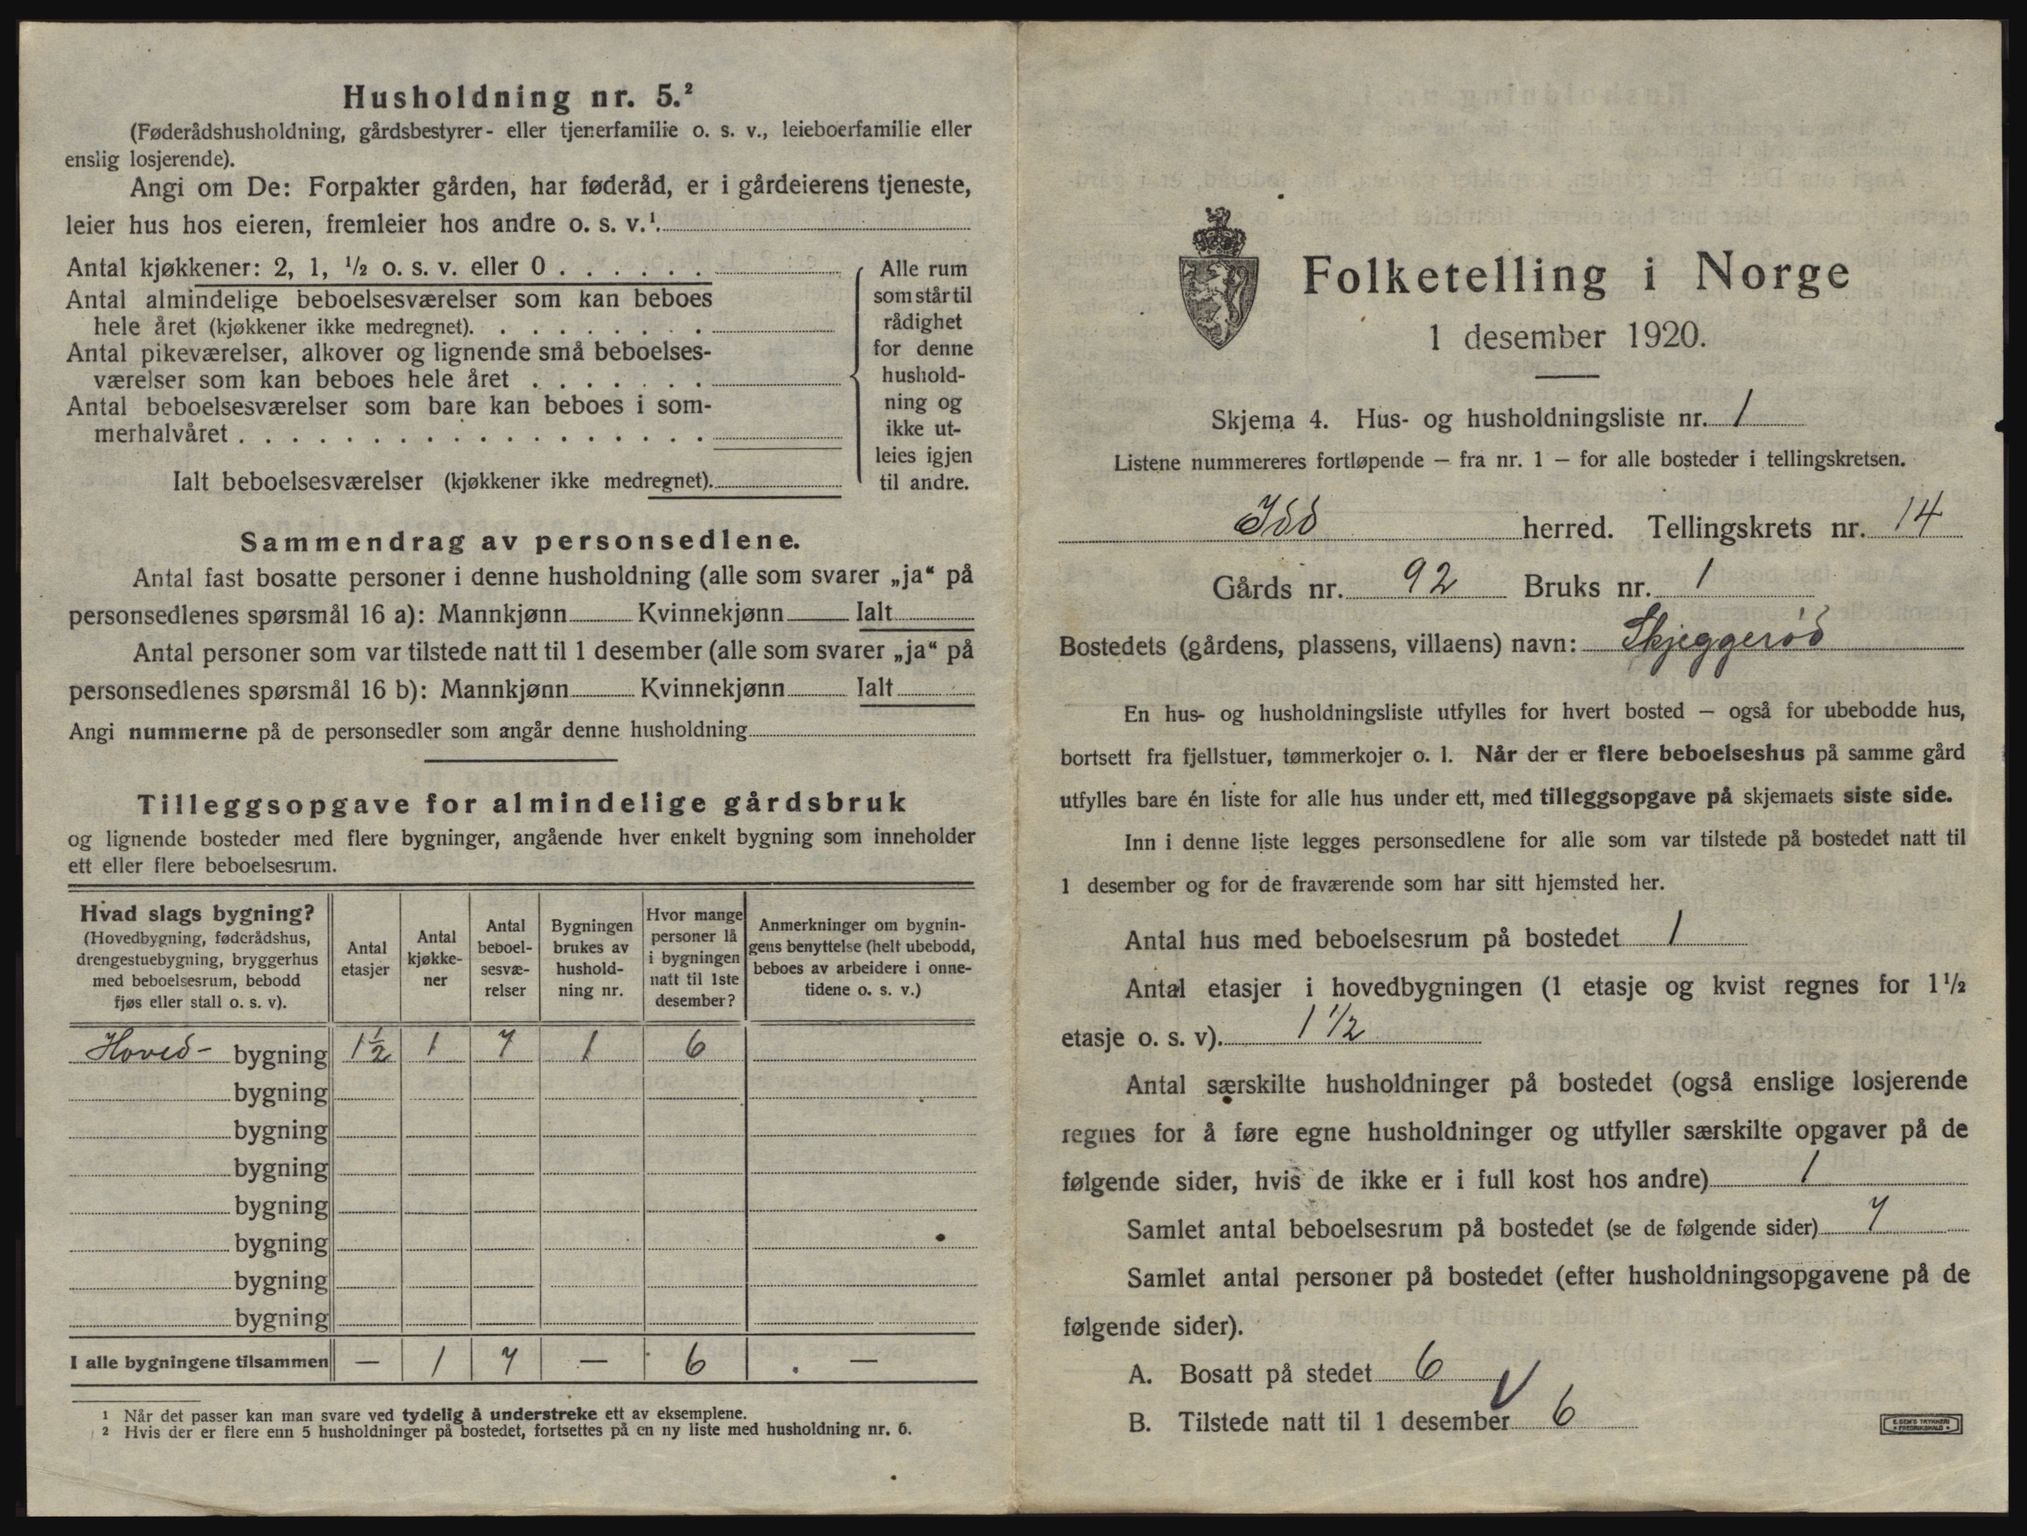 Husholdning nr. 5.²
(Føderådshusholdning, gårdsbestyrer- eller tjenerfamilie o. s. v., leieboerfamilie eller
enslig losjerende).
Angi om De: Forpakter gården, har føderåd, er i gårdeierens tjeneste,
leier hus hos eieren, fremleier hos andre o. s. v.¹.
Antal kjøkkener: 2, 1, ½ o. s. v. eller 0 . . . . . .
Antal almindelige beboelsesværelser som kan beboes
hele året (kjøkkener ikke medregnet). . . . . . . . .
Antal pikeværelser, alkover og lignende små beboelses-
værelser som kan beboes hele året . . . . . . .
Antal beboelsesværelser som bare kan beboes i som-
merhalvåret . . . . . . . . . . . . . . . . . .
Ialt beboelsesværelser (kjøkkener ikke medregnet).
Alle rum
som står til
rådighet
for denne
hushold-
ning og
ikke ut-
leies igjen
til andre.
Sammendrag av personsedlene.
Antal fast bosatte personer i denne husholdning (alle som svarer „ja“ på
personsedlenes spørsmål 16 a): Mannkjønn Kvinnekjønn Ialt
Antal personer som var tilstede natt til 1 desember (alle som svarer „ja“ på
personsedlenes spørsmål 16 b): Mannkjønn Kvinnekjønn Ialt
Angi nummerne på de personsedler som angår denne husholdning
Tilleggsopgave for almindelige gårdsbruk
og lignende bosteder med flere bygninger, angående hver enkelt bygning som inneholder
ett eller flere beboelsesrum.
Hvad slags bygning?
(Hovedbygning, føderådshus,
drengestuebygning, bryggerhus
med beboelsesrum, bebodd
fjøs eller stall o. s. v).
Antal
etasjer
Antal
kjøkke-
ner
Antal
beboel-
sesvæ-
relser
Bygningen
brukes av
hushold-
ning nr.
Hvor mange
personer lå
i bygningen
natt til 1ste
desember?
Anmerkninger om bygnin-
gens benyttelse (helt ubebodd,
beboes av arbeidere i onne-
tidene o. s. v.)
Hoved- bygning 1½ 1 7 1 6
bygning
bygning
bygning
bygning
bygning
bygning
bygning
I alle bygningene tilsammen — 1 7 — 6 —
¹ Når det passer kan man svare ved tydelig å understreke ett av eksemplene.
² Hvis der er flere enn 5 husholdninger på bostedet, fortsettes på en ny liste med husholdning nr. 6.
Folketelling i Norge
1 desember 1920.
Skjema 4. Hus- og husholdningsliste nr. 1
Listene nummereres fortløpende — fra nr. 1 — for alle bosteder i tellingskretsen.
Idd herred. Tellingskrets nr. 14
Gårds nr. 92 Bruks nr. 1
Bostedets (gårdens, plassens, villaens) navn: Skjeggerød
En hus- og husholdningsliste utfylles for hvert bosted — også for ubebodde hus,
bortsett fra fjellstuer, tømmerkojer o. l. Når der er flere beboelseshus på samme gård
utfylles bare én liste for alle hus under ett, med tilleggsopgave på skjemaets siste side.
Inn i denne liste legges personsedlene for alle som var tilstede på bostedet natt til
1 desember og for de fraværende som har sitt hjemsted her.
Antal hus med beboelsesrum på bostedet 1
Antal etasjer i hovedbygningen (1 etasje og kvist regnes for 1½
etasje o. s. v). 1½
Antal særskilte husholdninger på bostedet (også enslige losjerende
regnes for å føre egne husholdninger og utfyller særskilte opgaver på de
følgende sider, hvis de ikke er i full kost hos andre) 1
Samlet antal beboelsesrum på bostedet (se de følgende sider) 7
Samlet antal personer på bostedet (efter husholdningsopgavene på de
følgende sider).
A. Bosatt på stedet 6
B. Tilstede natt til 1 desember 6